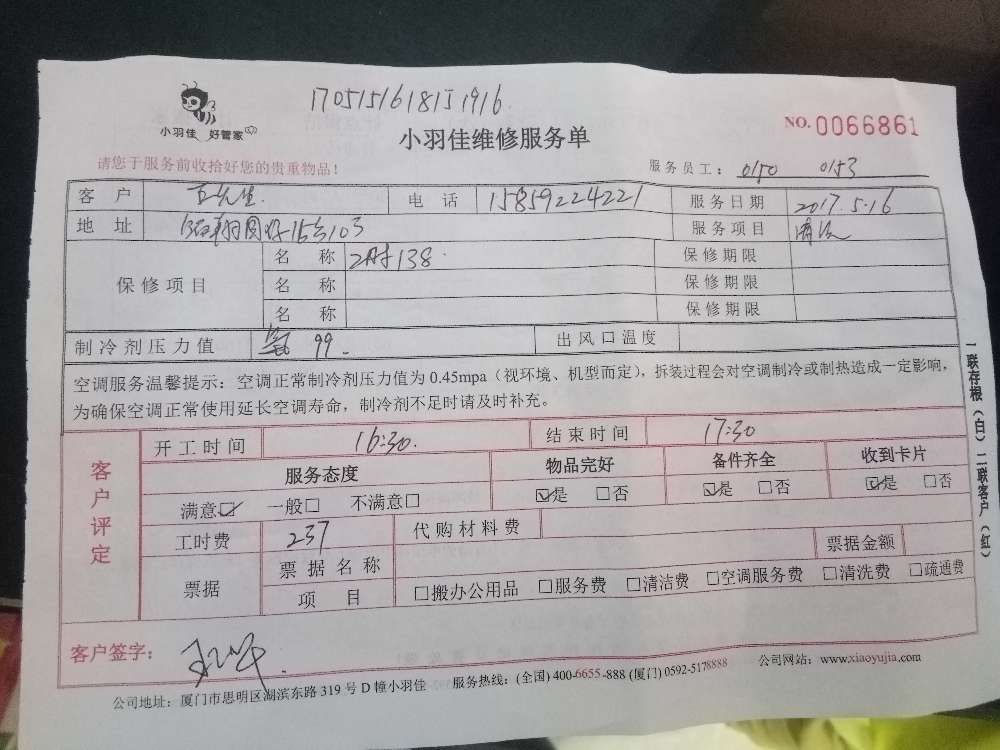 170515161811916
小羽佳 好管家
小羽佳维修服务单
NO. 0066861
请您于服务前收拾好您的贵重物品！
服务员工： 0150 0153
客户 先生. 电话 15859224221 服务日期 2017.5.16
地址 103 服务项目 清洗
保修项目
名称 138. 保修期限
名称 保修期限
名称 保修期限
制冷剂压力值 99. 出风口温度
空调服务温馨提示：空调正常制冷剂压力值为 0.45mpa（视环境、机型而定），拆装过程会对空调制冷或制热造成一定影响，
为确保空调正常使用延长空调寿命，制冷剂不足时请及时补充。
客户评定
开工时间 16:30. 结束时间 17:30
服务态度 物品完好 备件齐全 收到卡片
满意☑ 一般□ 不满意□ ☑是 □否 ☑是 □否 ☑是 □否
工时费 237 代购材料费
票据 票据名称 票据金额
项目 □搬办公用品 □服务费 □清洁费 □空调服务费 □清洗费 □疏通费
客户签字：
公司地址：厦门市思明区湖滨东路 319 号 D 幢小羽佳 服务热线：(全国) 400-6655-888 (厦门) 0592-5178888 公司网站：www.xiaoyujia.com
一联存根（白）二联客户（红）